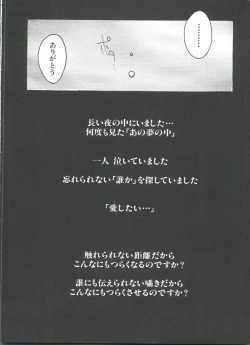 ………
ポタ
ありがとう
長い夜の中にいました…
何度も見た「あの夢の中」
一人 泣いていました
忘れられない「誰か」を探していました
「愛したい…」
触れられない距離だから
こんなにもつらくなるのですか？
誰にも伝えられない囁きだから
こんなにもつらくさせるのですか？